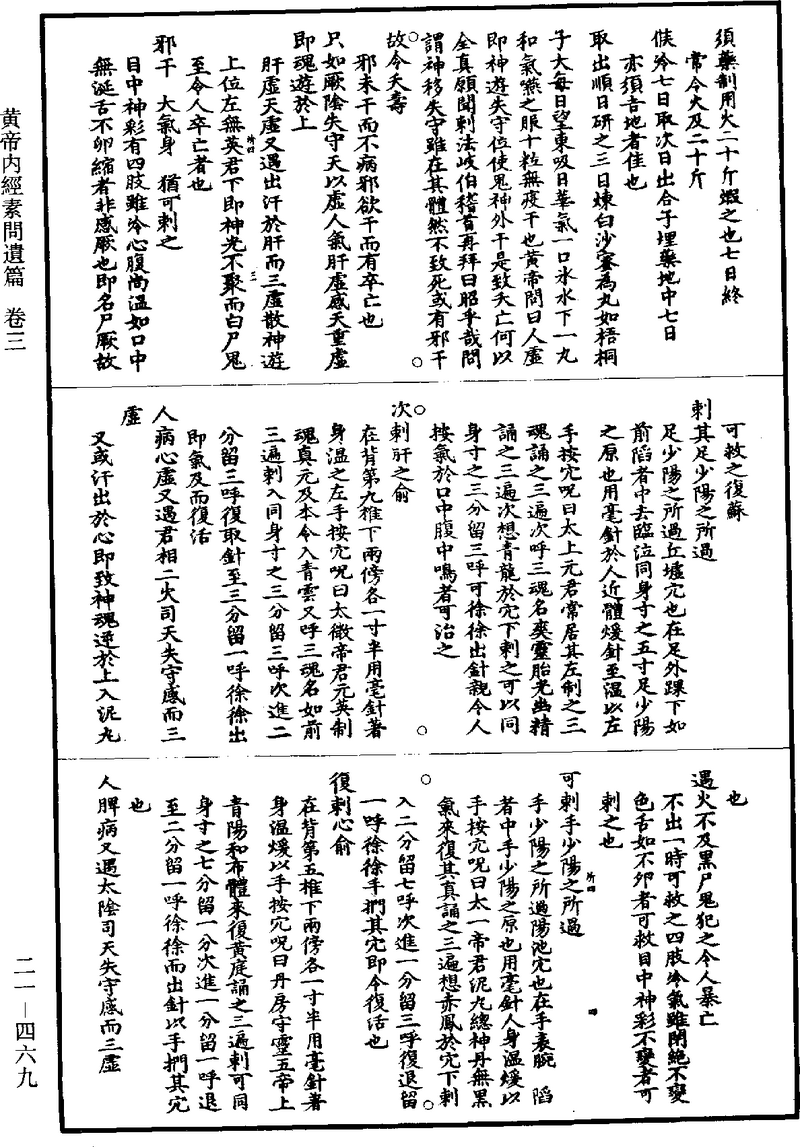 黄帝内經素問遺篇　卷三
二一－四六九
須藥制用火二十斤煆之也七日終
常令火及二十斤
候冷七日取次日出合子埋藥地中七日
亦須吉地者佳也
取出順日研之三日煉白沙蜜為丸如梧桐
子大每日望東吸日華氣一口冰水下一丸
和氣嚥之服十粒無疫干也黄帝問曰人虛
即神遊失守位使鬼神外干是致夭亡何以
全真願聞刺法岐伯稽首再拜曰昭乎哉問
謂神移失守雖在其體然不致死或有邪干
故令夭壽
邪未干而不病邪欲干而有卒亡也
只如厥陰失守天以虛人氣肝虛感天重虛
即魂遊於上
肝虛天虛又遇出汗於肝而三虛散神遊
上位左無英君下即神光不聚而白尸鬼
至令人卒亡者也
邪干　大氣身　猶可刺之
目中神彩有四肢雖冷心腹尚溫如口中
無涎舌不卵縮者非感厥也即名尸厥故
可救之復蘇
刺其足少陽之所過
足少陽之所過丘墟穴也在足外踝下如
前䧟者中去臨泣同身寸之五寸足少陽
之原也用毫針於人近體煖針至溫以左
手按穴呪曰太上元君常居其左制之三
魂誦之三遍次呼三魂名爽靈胎光幽精
誦之三遍次想青龍於穴下刺之可以同
身寸之三分留三呼可徐徐出針親令人
按氣於口中腹中鳴者可治之
次刺肝之俞
在背第九椎下兩傍各一寸半用毫針著
身溫之左手按穴呪曰太微帝君元英制
魂真元及本令入青雲又呼三魂名如前
三遍刺入同身寸之三分留三呼次進二
分留三呼復取針至三分留一呼徐徐出
即氣及而復活
人病心虛又遇君相二火司天失守感而三
虛
又或汗出於心即致神魂逆於上入泥丸
也
遇火不及黑尸鬼犯之令人暴亡
不出一時可救之四肢冷氣雖閉絕不變
色舌如不卵者可救目中神彩不變者可
刺之也
可刺手少陽之所過
手少陽之所過陽池穴也在手表腕　䧟
者中手少陽之原也用毫針人身溫煖以
手按穴呪曰太一帝君泥丸總神丹無黑
氣來復其真誦之三遍想赤鳳於穴下刺
入二分留七呼次進一分留三呼復退留
一呼徐徐手捫其穴即令復活也
復刺心俞
在背第五椎下兩傍各一寸半用毫針著
身溫煖以手按穴呪曰丹房守靈五帝上
青陽和布體來復黄庭誦之三遍刺可同
身寸之七分留一分次進一分留一呼退
至二分留一呼徐徐而出針以手捫其穴
也
人脾病又遇太陰司天失守感而三虛